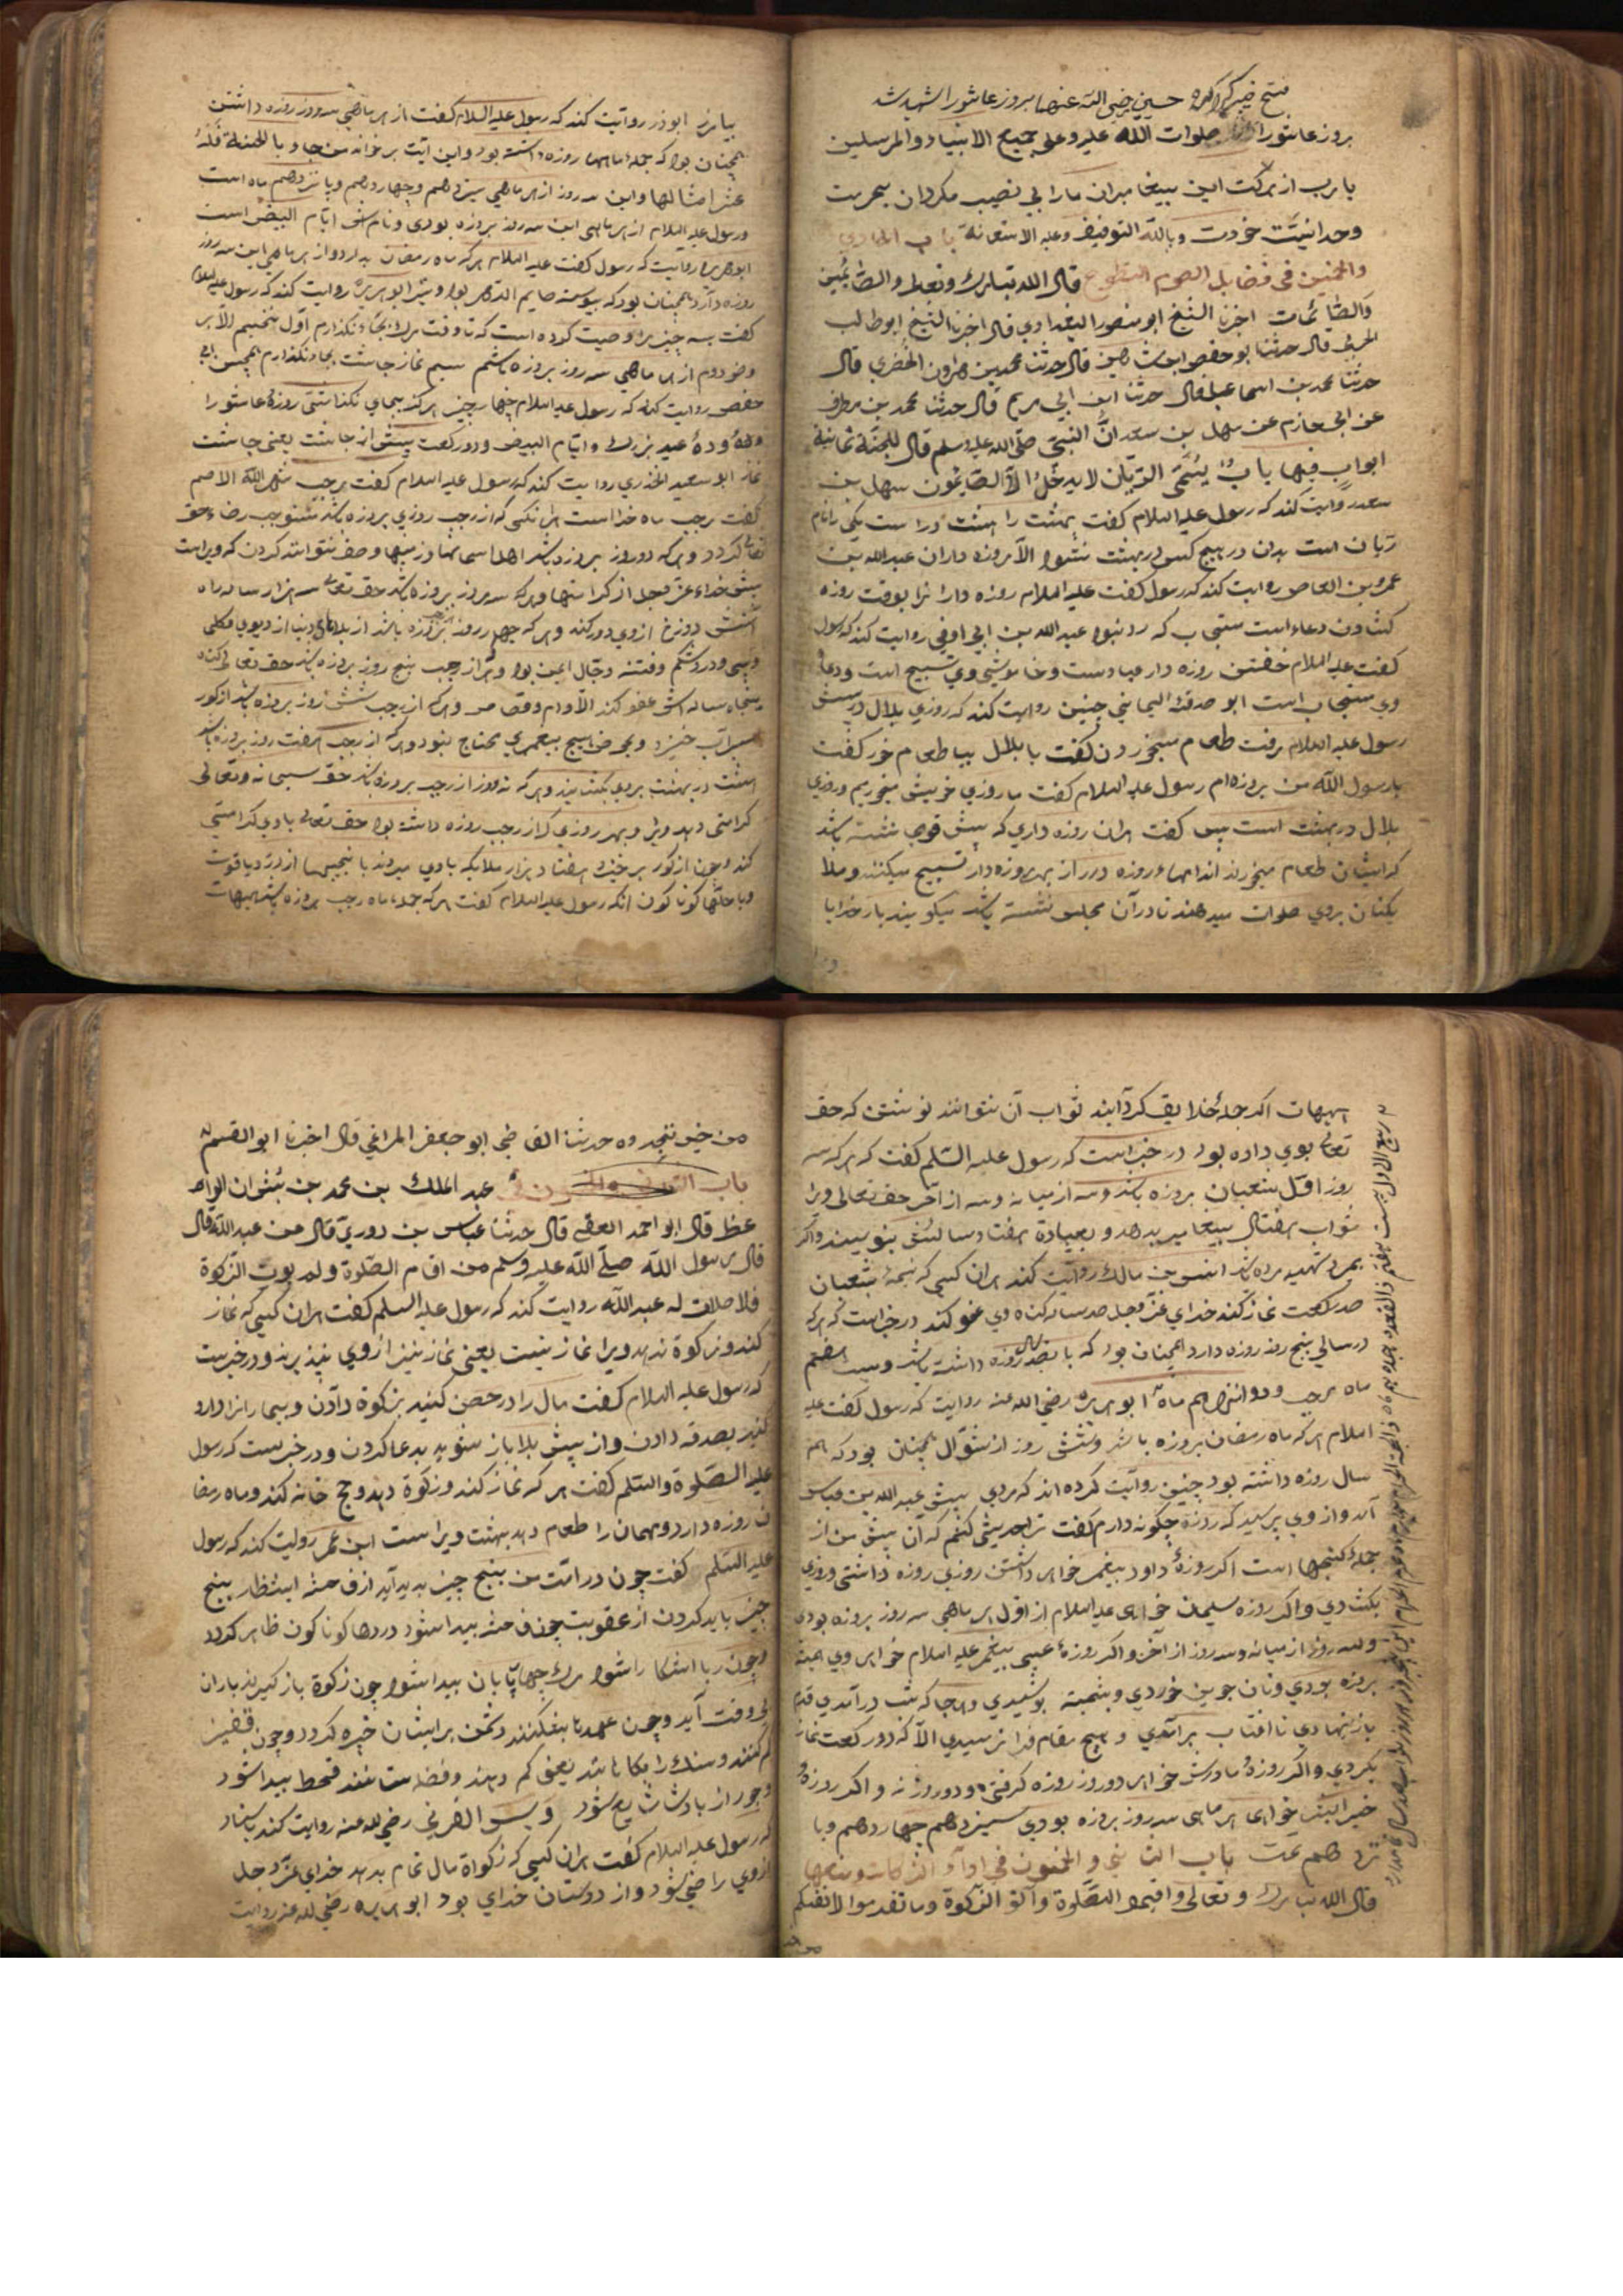 فتح خیبر کرد حسین رضی الله عنهما بروز عاشورا شهید شد
بروز عاشورا صلوات الله علیه وعلی جمیع الانبیاء والمرسلین
یارب از برکت این بیغامبران مارا بی نصیب مکردان بحرمت
وحدانیت خودت وبالله التوفیق وعلیه الاستعانة باب الحادی
والخمسین فی فضایل الصوم التطوع قال الله تبارک وتعالی والصائمین
والصائمات اخبرنا الشیخ ابو منصور البغدادی قال اخبرنا الشیخ ابوطالب
قال حدثنا ابو حفص بن شاهین قال حدثنا محمد بن هارون الحضرمی قال
حدثنا محمد بن اسماعیل قال حدثنا ابن ابی مریم قال حدثنا محمد بن مطرف
عن ابی حازم عن سهل بن سعد انّ النبیّ صلّی الله علیه وسلم قال للجنّة ثمانیة
ابوابٍ فیها بابٌ یُسَمّی الرّیّان لا یدخُلُ الاّ الصایمُون سهل بن
سعد روایت کند که رسول علیه السلام کفت بهشت را هشت در است یکی را نام
ریان است بدان در هیچ کس در بهشت نشود الا روزه داران عبد الله بن
عمرو بن العاص روایت کند که رسول کفت علیه السلام روزه دار را بوقت روزه
کشادن دعاء است مستجاب که رد نبود عبد الله بن ابی اوفی روایت کند که رسول
کفت علیه السلام خفتن روزه دار عبادست وخاموشی وی تسبیح است ودعا
وی مستجاب است ابو صدقه الیمانی چنین روایت کند که روزی بلال در پیش
رسول علیه السلام برفت طعام میخوردن کفت یا بلال بیا طعام خور کفت
یا رسول الله من بروزه ام رسول علیه السلام کفت ما روزی خویش میخوریم وروزی
بلال در بهشت است پس کفت هران روزه داری که پیش قومی نشسته باشد
که ایشان طعام میخورند اندامهاء روزه دار از بهر روزه دار تسبیح میکنند وملا
یکتان بروی صلوات میدهند تا در آن مجلس نشسته باشد میکویند بار خدایا
بیامرز ابوذر روایت کند که رسول علیه السلام کفت از هر ماهی سه روز روزه داشتن
همچنان بود که جمله ماهها روزه داشته بود واین آیت برخواند من جاء بالحسنة فله
عشر امثالها واین سه روز از هر ماهی سیزدهم وچهاردهم وپانزدهم ماه است
ورسول علیه السلام از هر ماهی این سه روز بروزه بودی ونامش ایّام البیض است
ابو هریره روایت که رسول کفت علیه السلام هر که ماه رمضان بدارد واز هر ماهی این سه روز
روزه دارد همچنان بود که پیوسته صایم الدّهر بود ونیز ابو هریره روایت کند که رسول علیه السلام
کفت بسه چیز مرا وصیت کرده است که تا وقت مرک بجای نکذارم اوّل نخسبم الا بر
وضو دوم از هر ماهی سه روز بروزه باشم سیم نماز چاشت بجا نکذارم
حفص روایت کند که رسول علیه السلام چهار چیز هرکز بجای نکذاشتی روزهٔ عاشورا
ودهٔ عید بزرک وایّام البیض ودو رکعت پیش از چاشت یعنی چاشت
نماز ابو سعید الخدری روایت کند که رسول علیه السلام کفت رجب شهر الله الاصم
کفت رجب ماه خدا است هرانکسی که از رجب روزی بروزه باشد مستوجب رضاء حق
تعالی کردد وهر که دو روز بروزه باشد اهل اسمانها وزمینها وصف نتوانند کردن که ویراست
پیش خداء عزّ وجل از کرامتها وهر که سه روز بروزه باشد حق تعالی سه هزار ساله راه
آتش دوزخ از وی دور کند وهر که چهار روز بروزه باشد از بلاهای دنیا از دیوی وکلی
وپیسی ودرد شکم وفتنه دجّال ایمن بود وهر از رجب پنج روز بروزه باشد حق تعالی کناه
پنجاه ساله اش عفو کند الا وام وقصاص وهر که از رجب شش روز بروزه باشد از کور
سیراب خیزد وبحوض هیچ پیغمبری محتاج نبود وهر که از رجب هفت روز بروزه باشد
هشت در بهشت بروی بکشایند وهر که نه روز از رجب بروزه باشد حق سبحانه وتعالی
کرامتی دهد ویرا وبهر روزی که از رجب روزه داشته بود حق تعالی با وی کرامتی
کند وچون از کور برخیزد هفتاد هزار ملایکه با وی میروند با نجیبها از درّ ویاقوت
وبا حلّهاء کوناکون آنکه رسول علیه السلام کفت هر که جمله ماه رجب بروزه باشد هیهات
هیهات اکر جملهٔ خلایق کرد آیند ثواب آن نتوانند نوشتن که حق
تعالی بوی داده بود در خبر است که رسول علیه السّلم کفت که هر که سه
روز اوّل شعبان بروزه باشد وسه از میانه وسه از آخر حق تعالی ویرا
ثواب هفتاد پیغامبر بدهد وبعبادة هفتاد ساله‌ش بنویسند واکر
بمیرد شهید مرده باشد انس بن مالک روایت کند هران کسی که نیمهٔ شعبان
صد رکعت نماز کند خدای عزّ وجل صد ساله کناه وی عفو کند در خبر است که هر که
در سالی پنج روز روزه دارد همچنان بود که پانصد سال روزه داشته باشد وبیست هفتم
ماه رجب ودوازدهم ماه ابو هریره رضی الله عنه روایت که رسول کفت علیه
السلام هر که ماه رمضان بروزه باشد وشش روز از شوّال همچنان بود که همه
سال روزه داشته بود چنین روایت کرده اند که مردی پیش عبد الله بن عباس
آمد واز وی پرسید که روزه چکونه دارم کفت ترا حدیثی کنم که آن پیش من از
جملهٔ کنجها است اکر روزهٔ داود پیغمبر خواهی داشتن روزی روزه داشتی وروزی
بکشادی واکر روزه سلیمان خواهی علیه السلام از اوّل هر ماهی سه روز بروزه بودی
وسه روز از میانه وسه روز از آخر واکر روزهٔ عیسی پیغمبر علیه السلام خواهی وی همیشه
بروزه بودی ونان جوین خوردی وپشمینه پوشیدی وهر جا که شب درآمدی قدم
بازنهادی تا آفتاب برآمدی وهیچ مقام فرا نرسیدی الا که دو رکعت نماز
بکردی واکر روزهٔ مادرش خواهی دو روز روزه کرفتی ودو روز نه واکر روزهٔ
خیر البشر خواهی هر ماهی سه روز بروزه بودی سیزدهم چهاردهم وپا
نزدهم تمت باب الثانی والخمسون فی اداء الزکات ومنعها
قال الله تبارک وتعالی واقیموا الصّلوة وآتوا الزّکوة وما تقدموا لانفسکم
من خیر تجدوه حدثنا القاضی ابو جعفر المراغی قال اخبرنا ابو القسم
باب عبد الملک بن محمد بن بشران الوا
عظ قال ابو احمد العقبی قال حدثنا عباس بن دوری قال عن عبد الله قال
قال رسول الله صلّی الله علیه وسلّم من اقام الصّلوة ولم یوت الزّکوة
فلا صلات له عبد الله روایت کند که رسول علیه السلم کفت هران کسی که نماز
کند وزکوة ندهد ویرا نماز نیست یعنی نماز نیز از وی نپذیرند ودر خبرست
که رسول علیه السلام کفت مال را در حصن کنید بزکوة دادن وبیمارانرا دارو
کنید بصدقه دادن واز پیش بلا باز شوید بدعا کردن ودر خبرست که رسول
علیه الصّلوة والسّلم کفت هر که نماز کند وزکوة دهد وحج خانه کند وماه رمضا
ن روزه دارد ومهمان را طعام دهد بهشت ویراست ابن عمر روایت کند که رسول
علیه السّلم کفت چون در امّت من پنج چیز پدید آید از فاحشه انتظار پنج
چیز باید کردن از عقوبت چون فاحشه پیدا شود دردها کوناکون ظاهر کردد
وچون ربا آشکارا شود مرک چهارپایان پیدا شود چون زکوة باز کیرند باران
بی وقت آید وچون عهدها بشکنند دشمن بر ایشان خیره کردد وچون قفیز
کم کنند وسنک را بکاهانند یعنی کم دهند وفضله ستانند قحط پیدا شود
وجور از پادشاه شایع شود ویس القرنی رضی الله عنه روایت کند باسناد
که رسول علیه السلام کفت هران کسی که زکواة مال تمام بدهد خدای عزّ وجل
از وی راضی شود واز دوستان خدای بود ابو هریره رضی الله عنه روایت